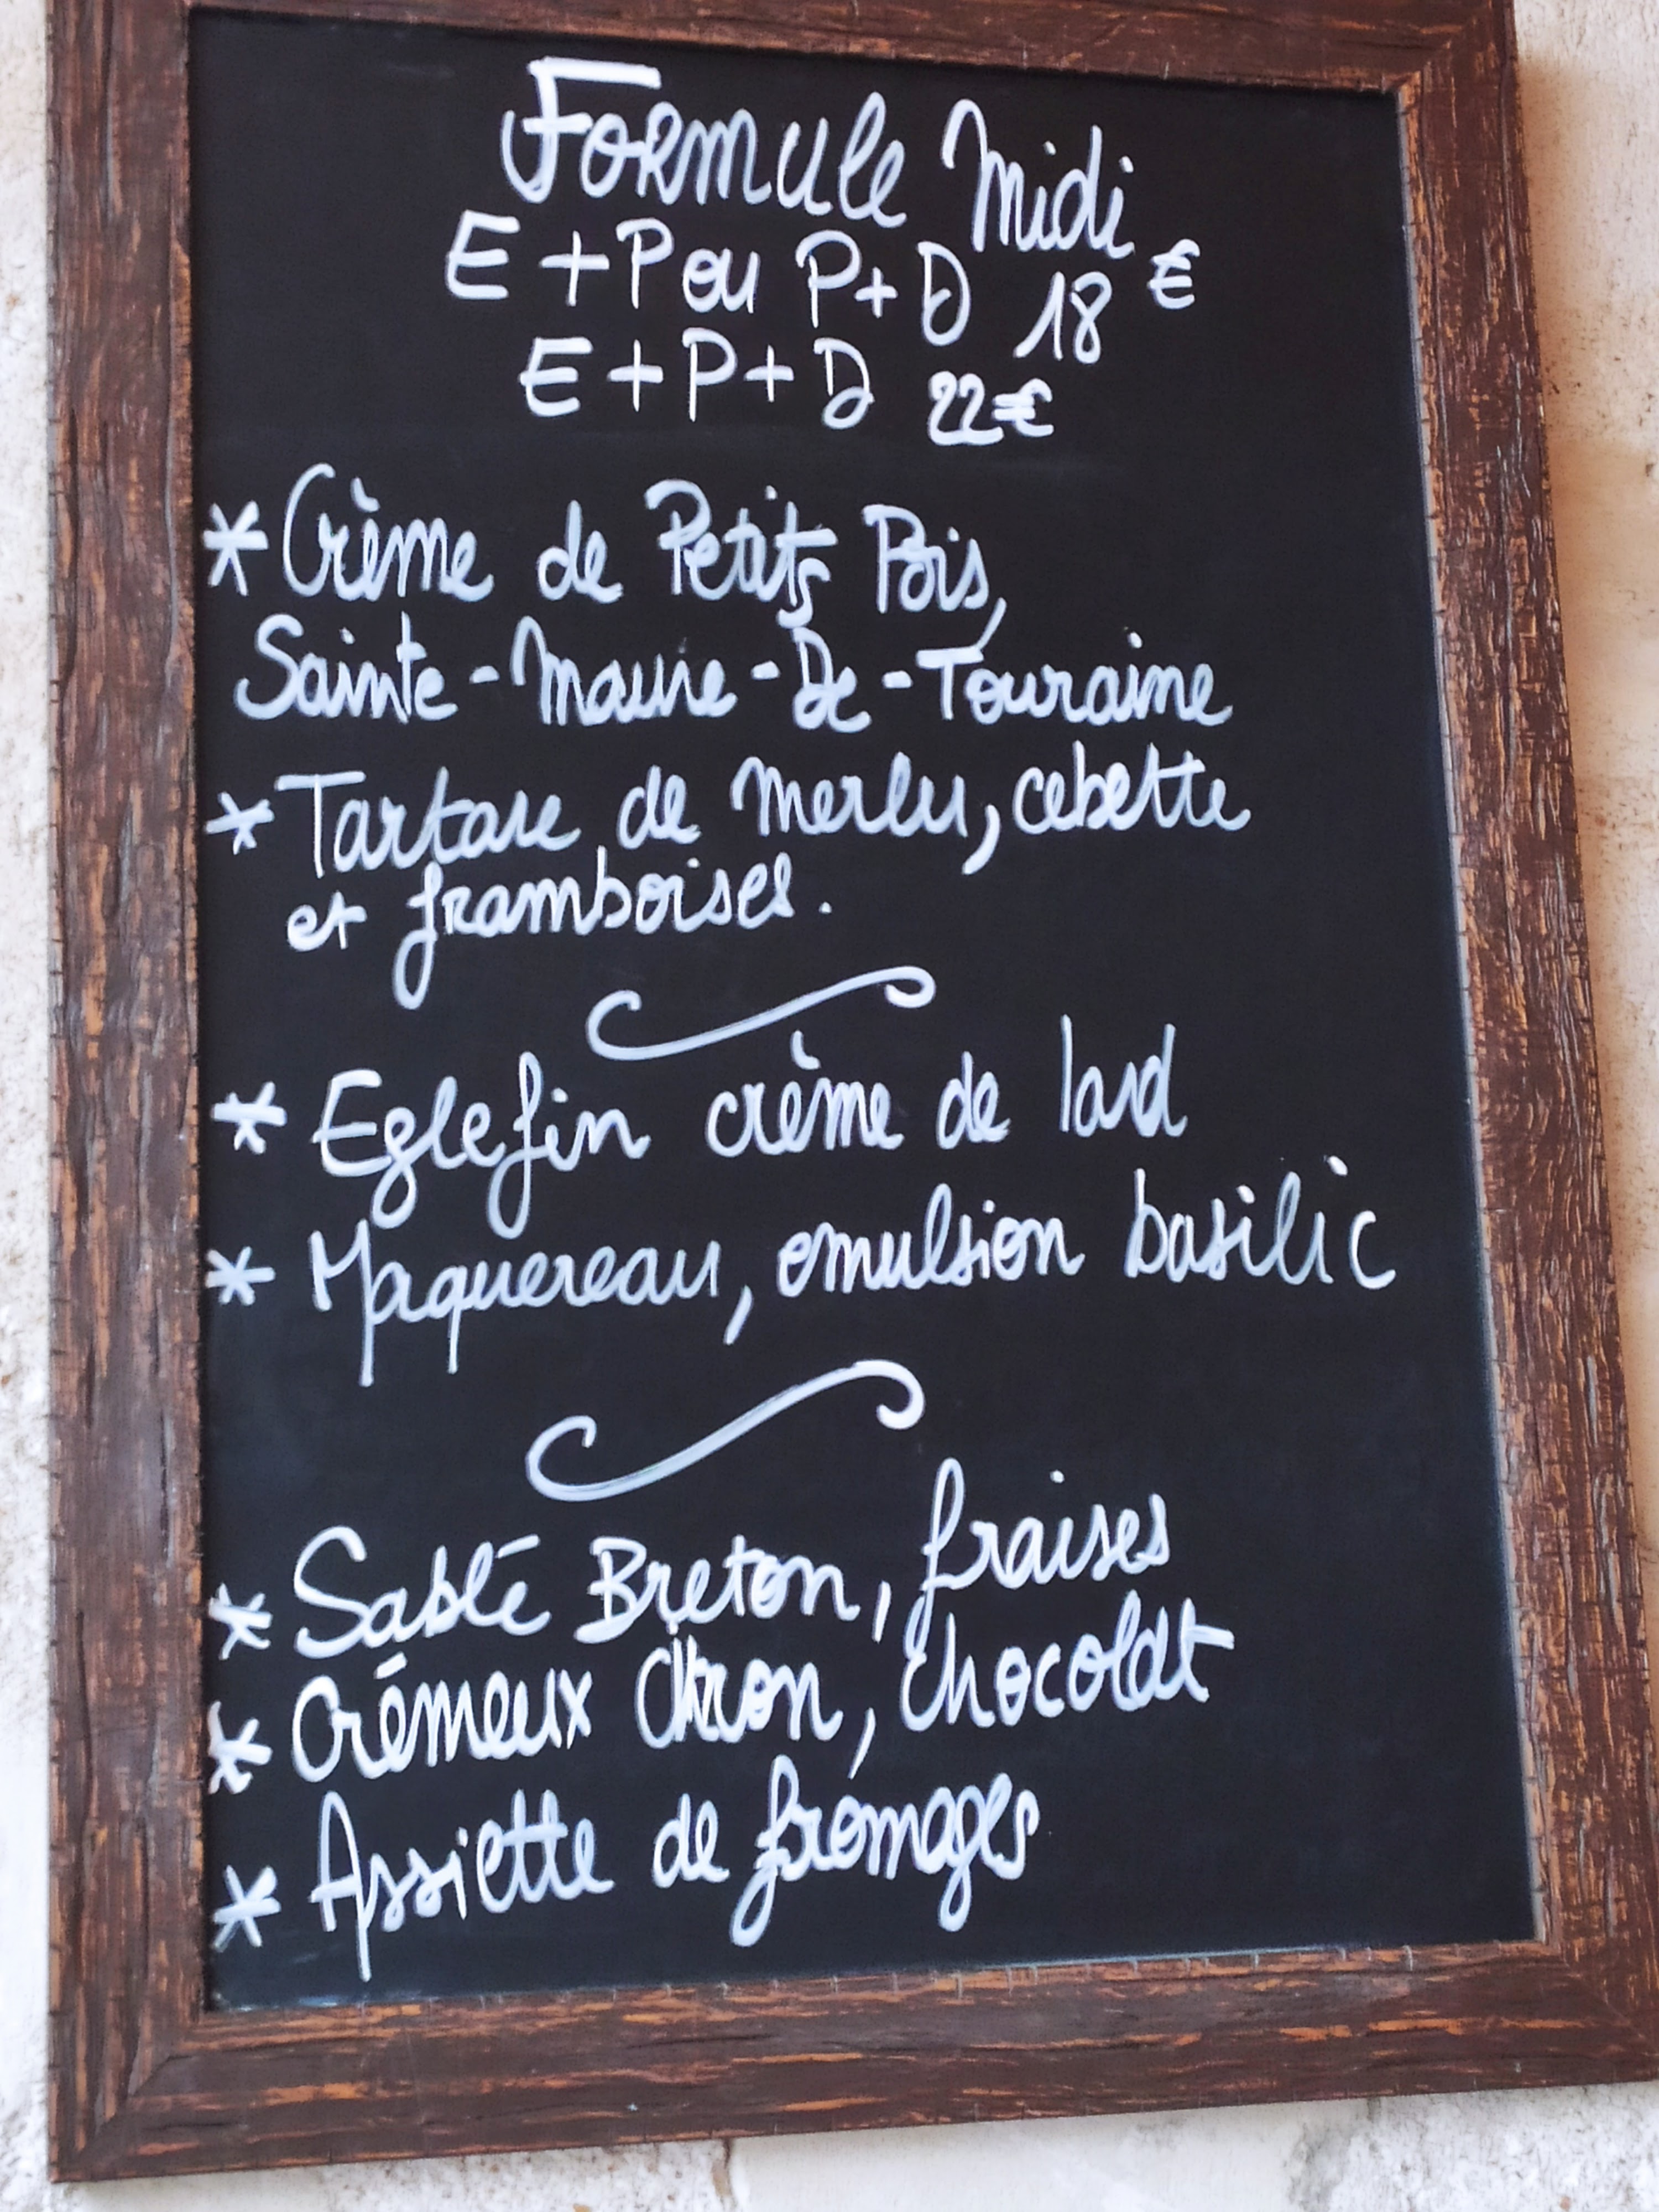 Formule Midi
E + P ou P + D 18 €
E + P + D 22€
* Crème de Petits Pois,
Sainte - Maure - De - Touraine
* Tartare de Merlu, cebette
et framboises.
* Eglefin crème de lard
* Maquereau, emulsion basilic
* Sablé Breton, fraises
* Crémeux citron, chocolat
* Assiette de fromages